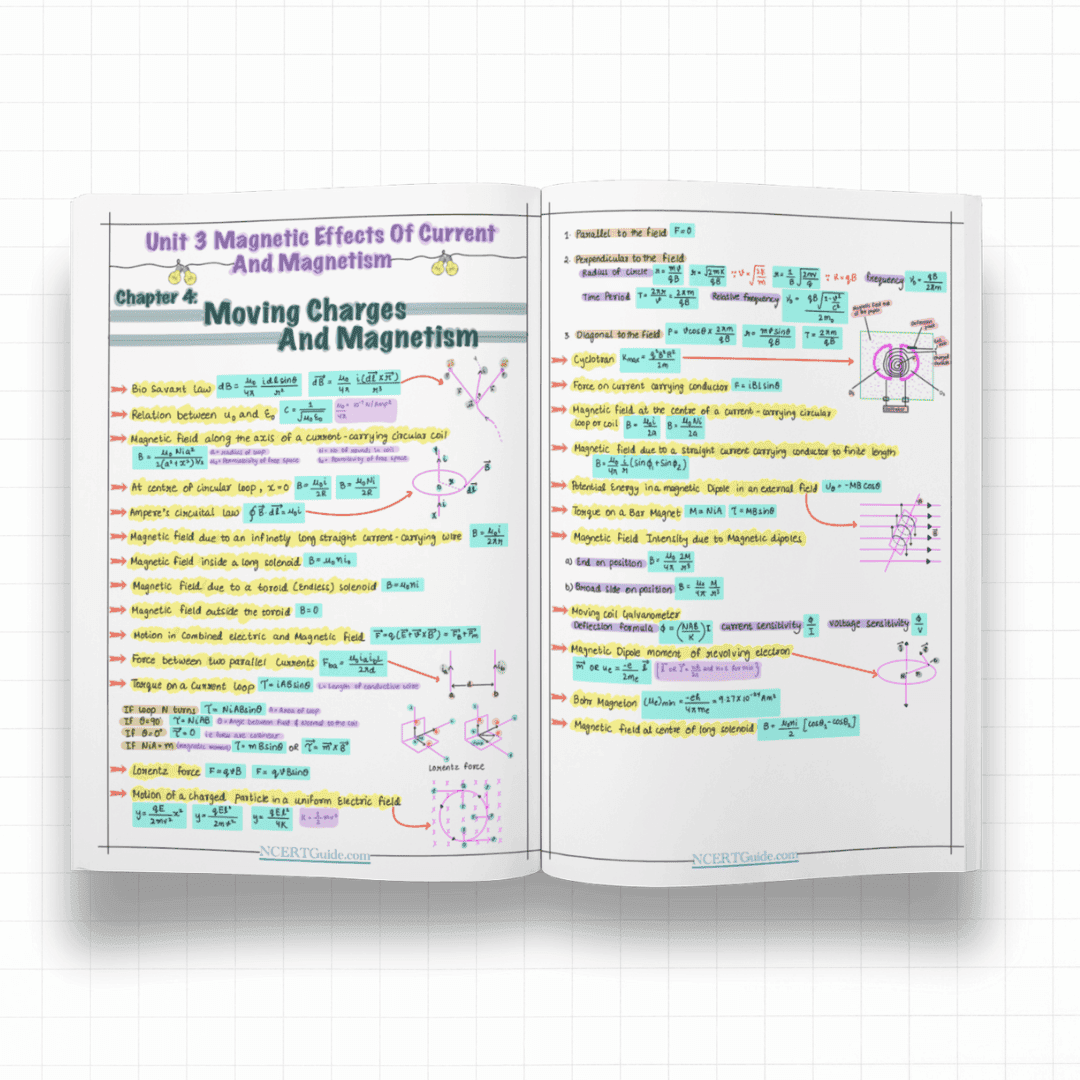 Unit 3 Magnetic Effects Of Current
And Magnetism
Chapter 4:
Moving Charges
And Magnetism
Bio Savart Law dB = μ₀/4π idlsinθ/r² d⃗B = μ₀/4π i(d⃗l×r⃗)/r³
Relation between u₀ and ε₀ C = 1/√μ₀ε₀
Magnetic field along the axis of a current-carrying circular coil
B = μ₀Nia²/2(a²+x²)³/²
a = radius of loop
N = no of rounds in coil
μ₀ = Permeability of free space
ε₀ = Permitivity of free space
At centre of circular loop, x=0 B = μ₀i/2R B = μ₀Ni/2R
Ampere's circuital law ∮B⃗·d⃗l = μ₀i
Magnetic field due to an infinetly long straight current-carrying wire B = μ₀i/2πr
Magnetic field inside a long solenoid B = μ₀ni₀
Magnetic field due to a toroid (Endless) solenoid B = μ₀ni
Magnetic field outside the toroid B = 0
Motion in Combined electric and Magnetic Field
Force between two parallel Currents
Torque on a Current loop τ = iABsinθ L = Length of conductive wire
If loop N turns τ = NiABsinθ A = Area of loop
If θ=90° τ = NiAB θ = Angle between field & Normal to the coil
If θ=0° τ = 0
If NiA = m (magnetic moment) τ = mBsinθ OR τ⃗ = m⃗×B⃗
Lorentz force F = qvB F = qvBsinθ
Lorentz force
Motion of a charged Particle in a uniform Electric field
y = qE/2mv² x² y = qEl²/2mv² y = qEl²/4K K = ½mv²
NCERTGuide.com
1. Parallel to the field F = 0
2. Perpendicular to the field
Radius of circle r = mv/qB r = √2mk/qB
Frequency ν₀ = qB/2πm
Time Period T = 2πr/v = 2πm/qB Relative frequency
3. Diagonal to the field P = vcosθ × 2πm/qB r = mvsinθ/qB T = 2πm/qB
Cyclotran Kmax = q²B²R²/2m
Force on current carrying conductor F = iBlsinθ
Magnetic field at the centre of a current-carrying circular
loop or coil B = μ₀i/2a B = μ₀Ni/2a
Magnetic field due to a straight current carrying conductor to finite length
B = μ₀/4π i/r (sinφ₁+sinφ₂)
Potential Energy in a magnetic Dipole in an external field Uθ = -MBcosθ
Torque on a Bar Magnet M = NiA τ = MBsinθ
Magnetic Field Intensity due to Magnetic dipoles
a) End on position B = μ₀/4π 2M/r³
b) Broad side on position B = μ₀/4π M/r³
Moving coil Galvanometer
Deflection formula φ = (NAB/K) I current sensitivity φ/I voltage sensitivity φ/V
Magnetic Dipole moment of revolving electron
Bohr Magneton (μₑ)min = -eh/4πmₑ = 9.27×10⁻²⁴ Am²
Magnetic field at centre of long solenoid B = μ₀ni/2 [cosθ₁-cosθ₂]
NCERTGuide.com